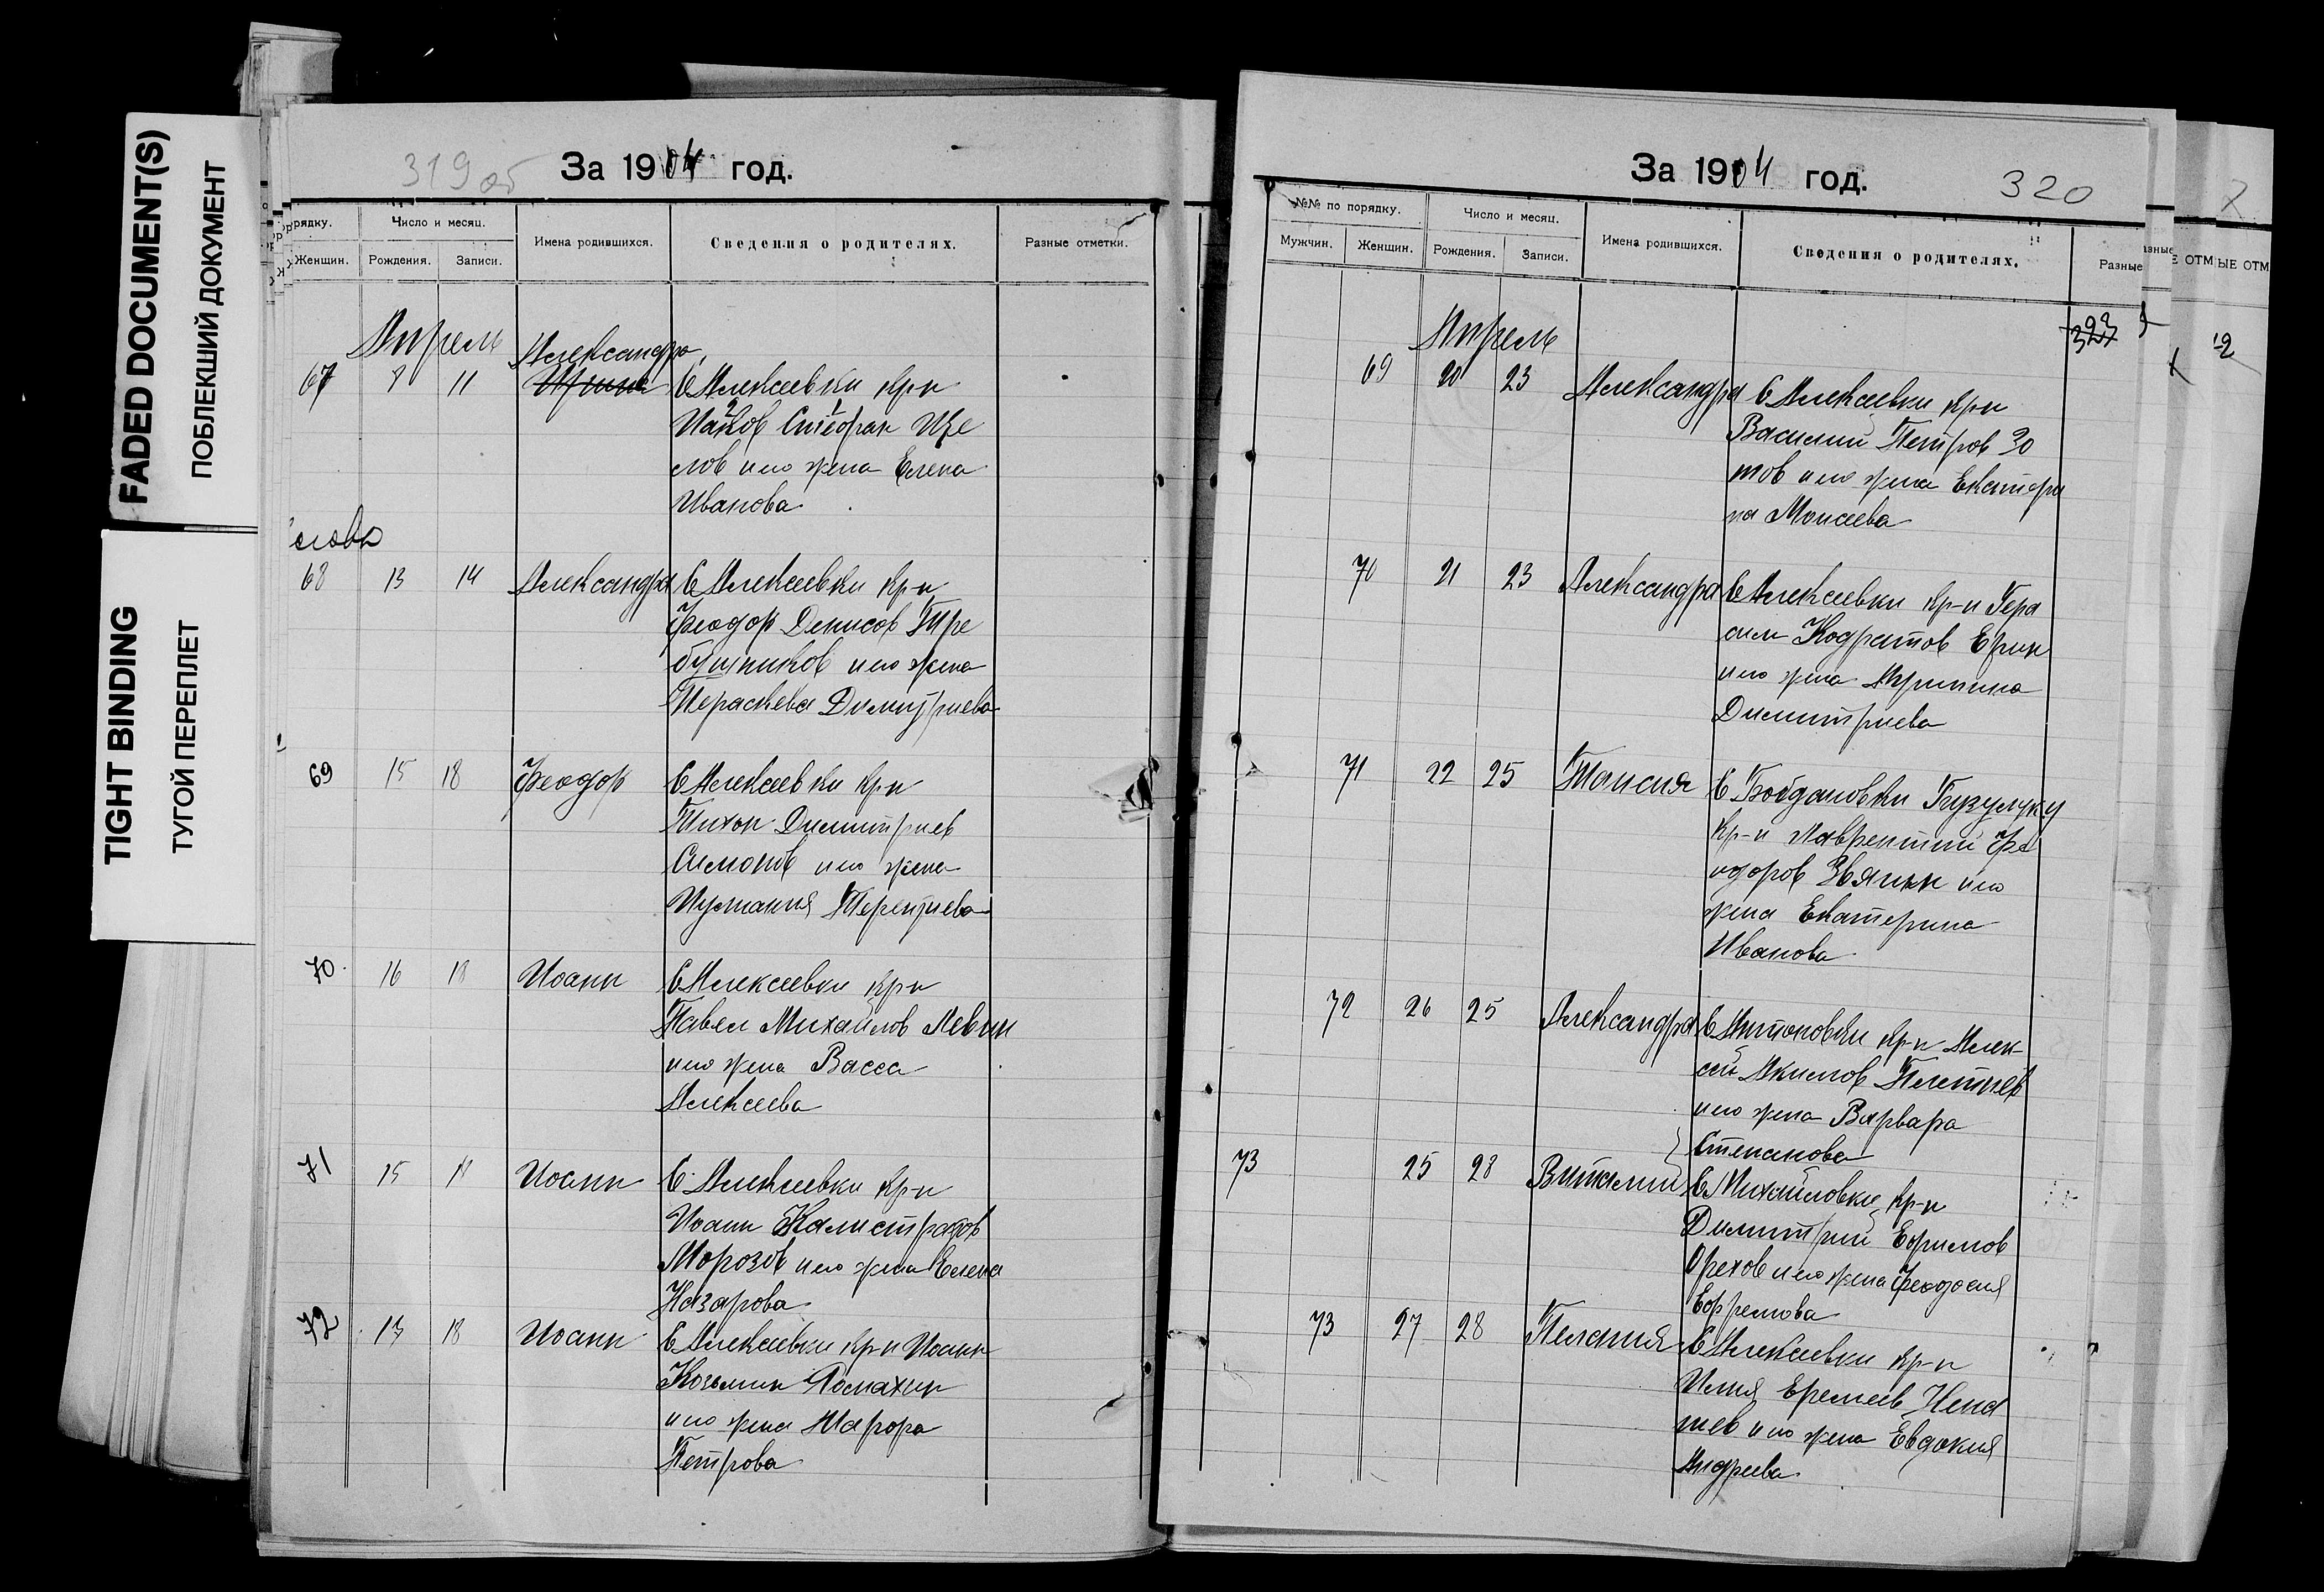 FADED DOCUMENT(S)
ПОБЛЕКШИЙ ДОКУМЕНТ
TIGHT BINDING
ТУГОЙ ПЕРЕПЛЕТ
319об
За 1904 год.
рядку.
Число и месяц.
Имена родившихся.
Сведения о родителях.
Разные отметки.
Женщин.
Рождения.
Записи.
Апрель
Александра
67 9 11 С Алексеевки кр-н
Стефан Уце
лов и его жена Елена
Иванова
68 13 14 Александра С Алексеевки кр-н
Феодор Денисов Тре
бушников и его жена
Параскева Димитриева
69 15 18 Феодор С Алексеевки кр-н
Тихон Димитриев
Симонов и его жена
Иулиания Терентиева
70 16 18 Иоанн С Алексеевки кр-н
Павел Михайлов Левин
и его жена Васса
Алексеева
71 15 Иоанн С. Алексеевки кр-н
Иоанн Калистратов
Морозов и его жена Елена
Назарова
72 18 Иоанн С Алексеевки кр-н Иоанн
Козьмин Ломахин
и его жена Мавра
Петрова
За 1904 год.
320
№№ по порядку.
Число и месяц.
Имена родившихся.
Сведения о родителях.
Разные
Мужчин.
Женщин.
Рождения.
Записи.
Апрель
323
69 20 23 Александра С Алексеевки кр-н
Василий Петров Зо
тов и его жена Екатери
на Моисеева
70 21 23 Александра С Алексеевки кр-н Гера
сим Кодратов Ерин
и его жена Агрипина
Димитриева
71 22 25 Таисия С Богдановки Бузулук у
кр-н Лаврентий Фе
одоров Звягин и его
жена Екатерина
Иванова
72 26 25 Александра С Антоновки кр-н Алек-
сей Акимов Плетнев
и его жена Варвара
Степанова
73 25 28 Виталий С Михайловки кр-н
Димитрий Ефимов
Орехов и его жена Феодосия
Ефремова
73 27 28 Пелагия С Алексеевки кр-н
Илия Еремеев Нена
шев и его жена Евдокия
Андреева